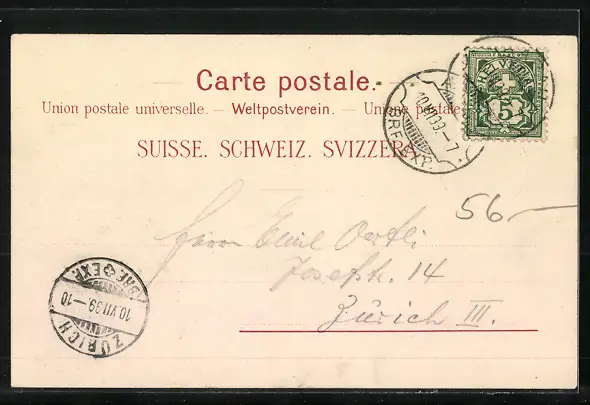 Carte postale.
Union postale universelle. — Weltpostverein. — Unione postale
SUISSE. SCHWEIZ. SVIZZERA
HELVETIA
5
10.VII.99.–7
BRF. EXP.
56–
Herrn Emil Oertli
Josefstr. 14
Zürich III.
BRF. EXP.
10.VII.99.–10
ZÜRICH